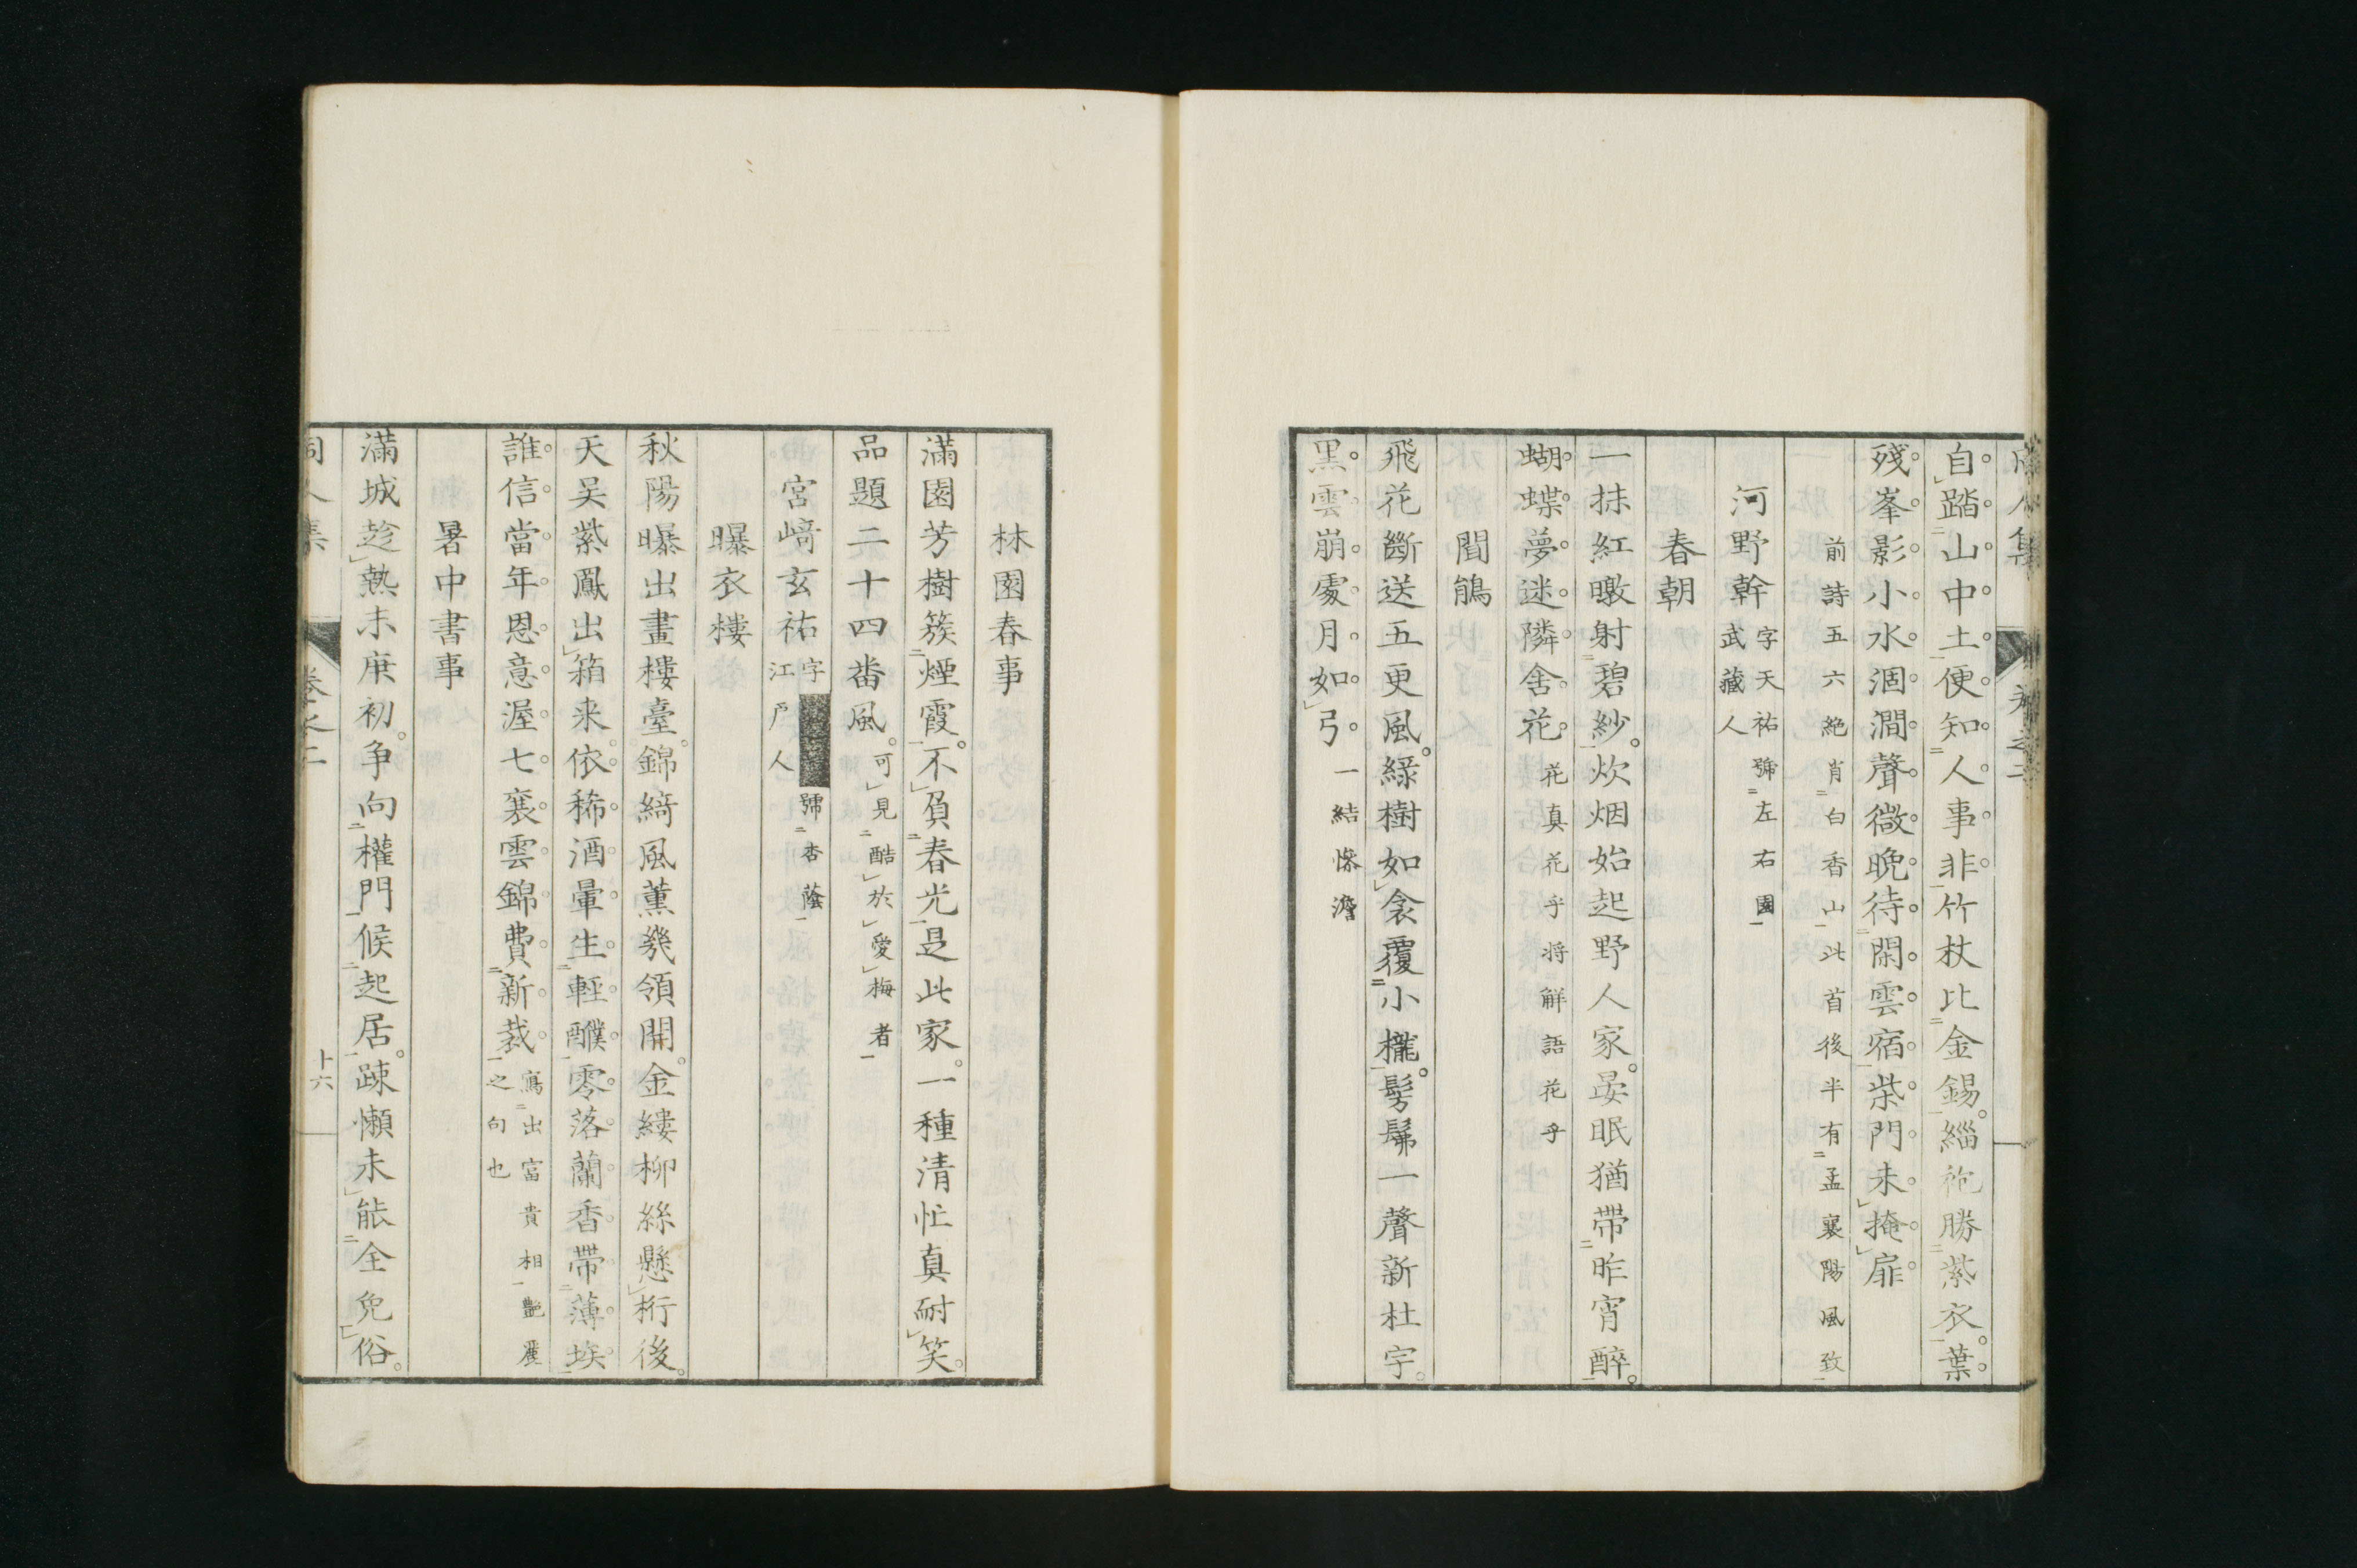 自踏山中土便知人事非竹杖比金錫緇袍勝紫衣葉
殘峯影小水涸澗聲微晩待閑雲宿柴門未掩扉
前詩五六絶肖白香山此首後半有孟襄陽風致
河野幹 字天祐號左右園
武藏人
春朝
一抹紅暾射碧紗炊烟始起野人家晏眠猶帶昨宵醉
蝴蝶夢迷隣舍花 花真花乎将解語花乎
聞鵑
飛花斷送五更風緑樹如衾覆小櫳髣髴一聲新杜宇
黒雲崩處月如弓 一結慘澹
林園春事
滿園芳樹簇煙霞不負春光是此家一種清忙真耐笑
品題二十四番風 可見酷於愛梅者
宮﨑玄祐 字 號杏蔭
江戸人
曝衣樓
秋陽曝出畫樓臺錦綺風薫幾領開金縷柳絲懸桁後
天吴紫鳳出箱来依稀酒暈生輕醭零落蘭香帶薄埃
誰信當年恩意渥七襄雲錦費新裁 寫出富貴相艷麗
之句也
暑中書事
滿城趁熱未庚初争向權門候起居踈懶未能全免俗
同人集 卷之二 十六